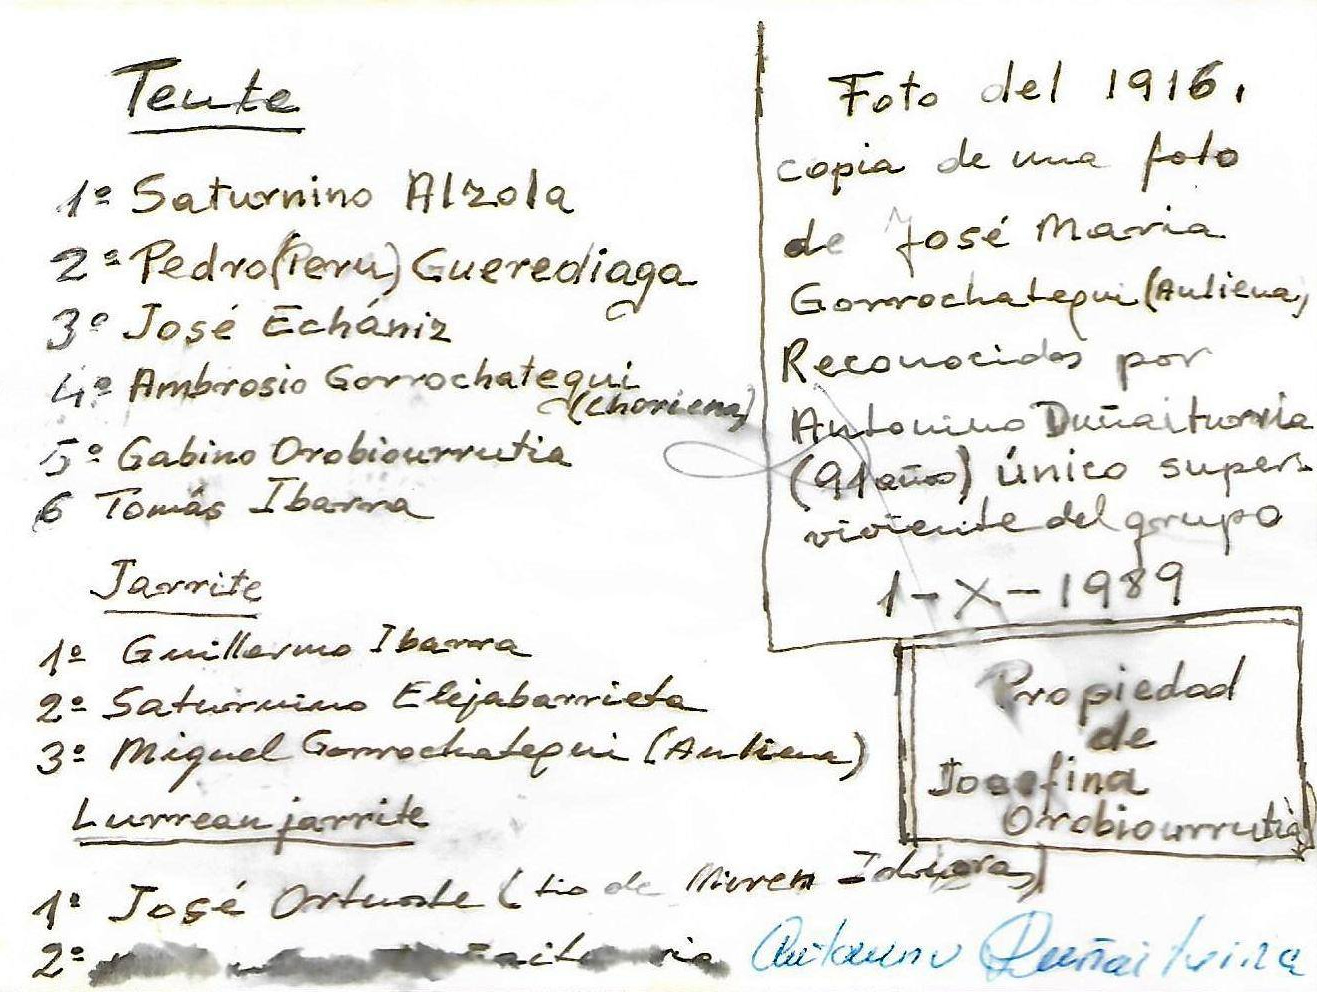 Teute
1º Saturnino Alzola
2º Pedro (Peru) Guerediaga
3º José Echániz
4º Ambrosio Gorrochategui
(Choriena)
5º Gabino Orobiourrutia
6 Tomás Ibarra
Jarrite
1º Guillermo Ibarra
2º Saturnino Elejabarrieta
3º Miguel Gorrochategui (Auliena)
Lurrean jarrite
1º José Ortuoste (tio de Miren Iduigoras)
2º
Foto del 1916,
copia de una foto
de José Maria
Gorrochategui (Auliena)
Reconocidos por
Antonino Duñaiturria
(91 años) único super-
viviente del grupo
1-X-1989
Propiedad
de
Josefina
Orobiourrutia
Antonino Duñaiturria